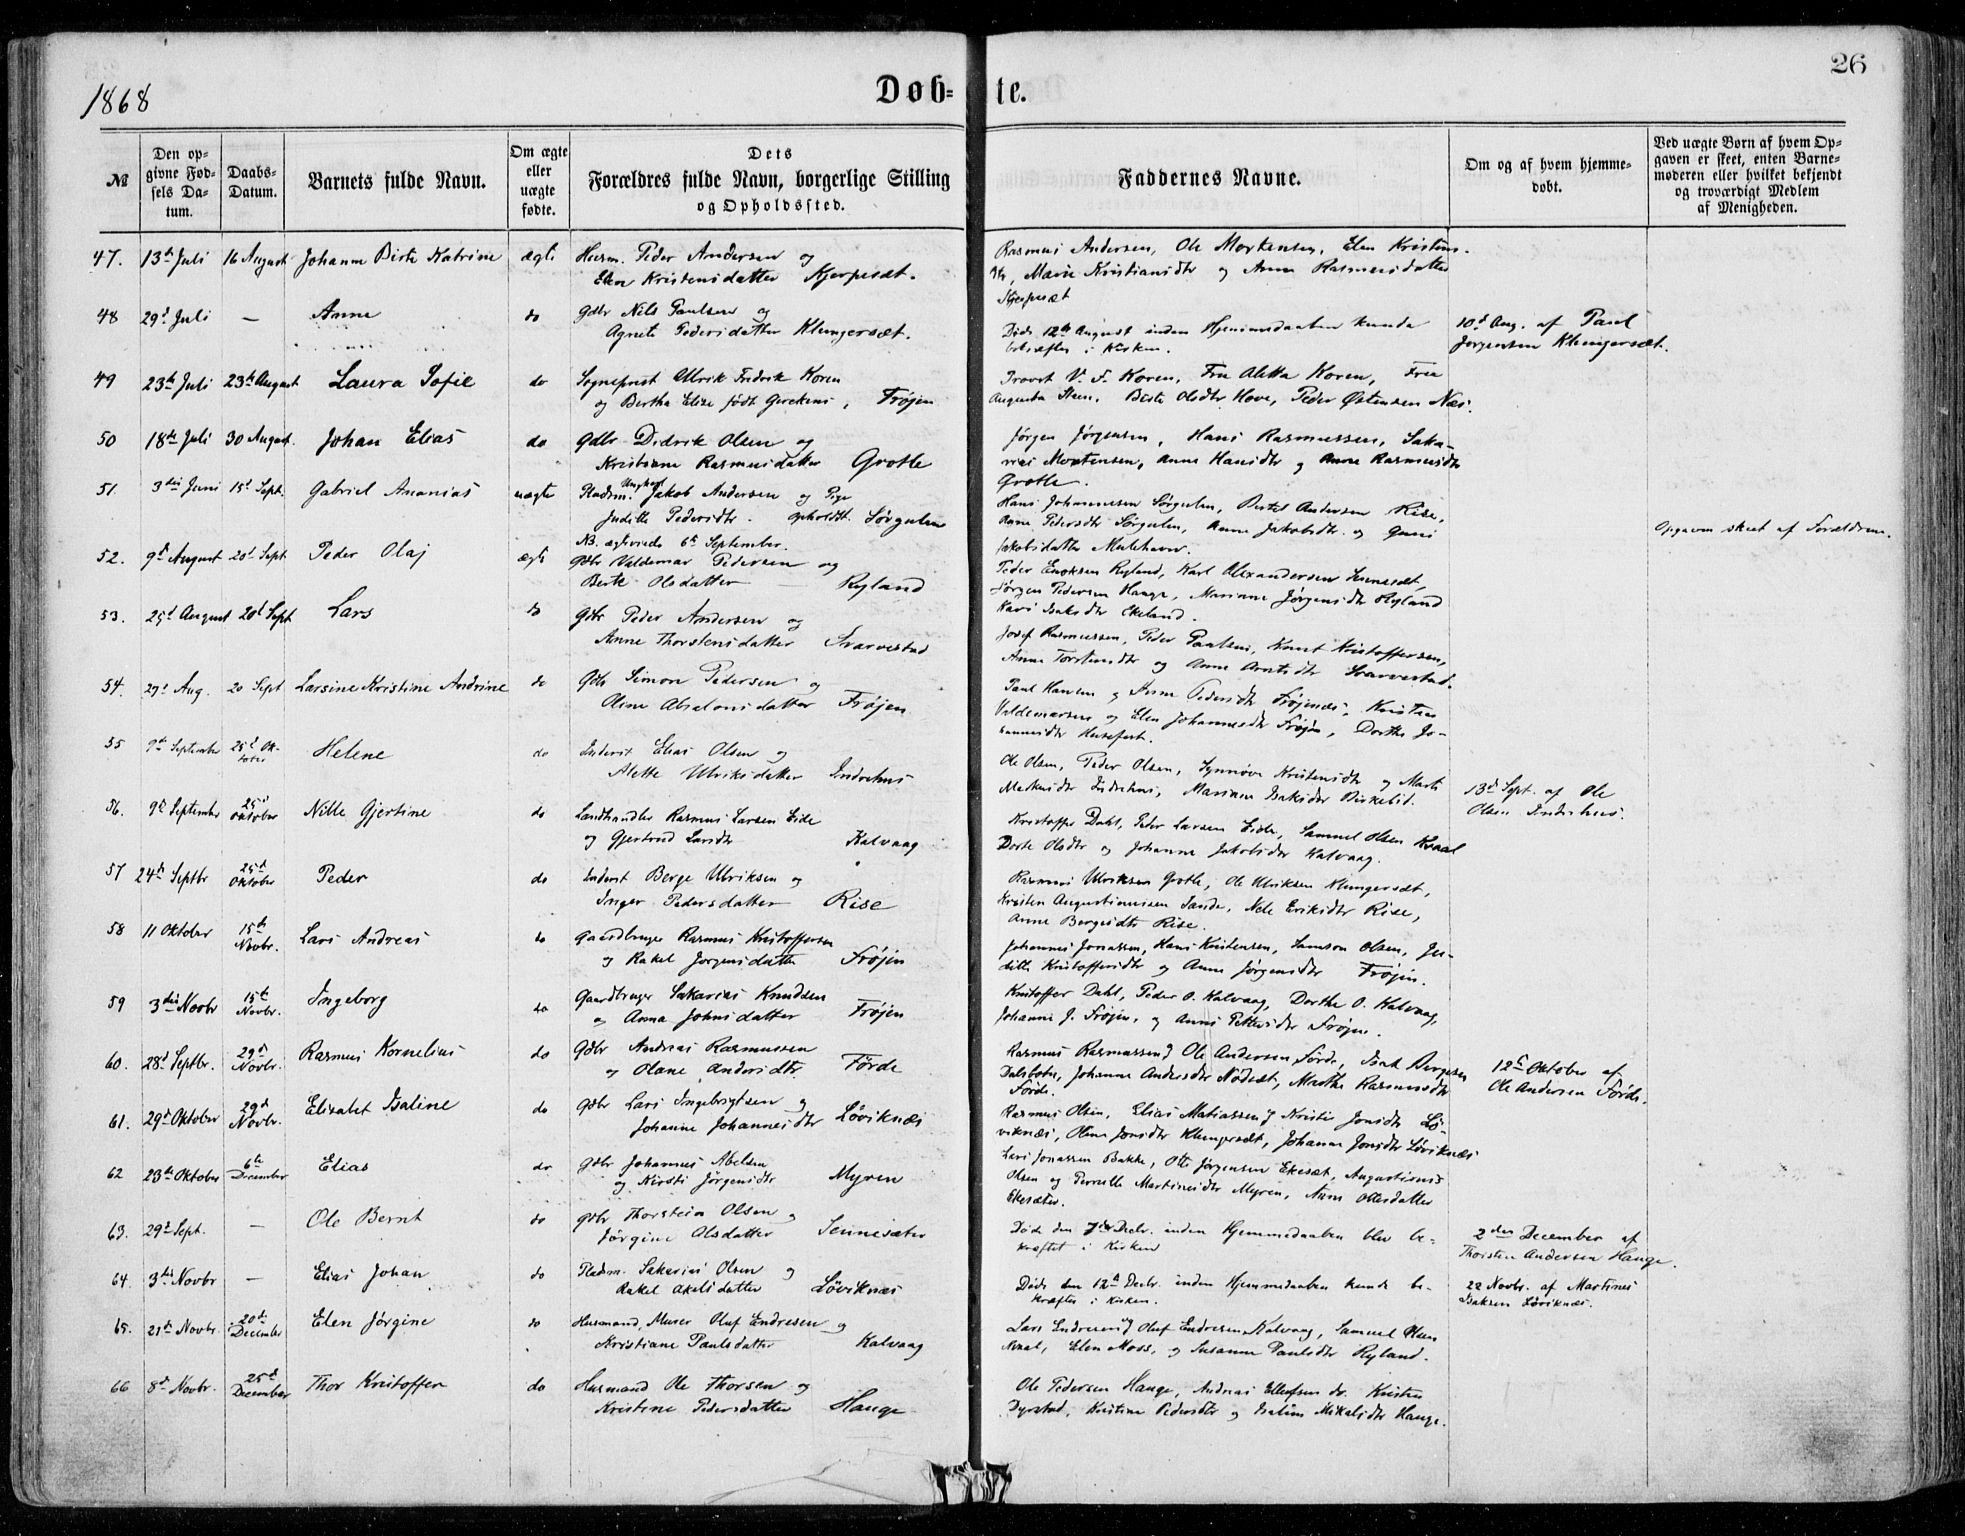 1868
Døb-
te.
26
№
Den op-
givne Fød-
sels Da-
tum.
Daabs-
Datum.
Barnets fulde Navn.
Om ægte
eller
uægte
fødte.
Dets
Forældres fulde Navn, borgerlige Stilling
og Opholdssted.
Faddernes Navne.
Om og af hvem hjemme-
døbt.
Ved uægte Børn af hvem Op-
gaven er skeet, enten Barne-
moderen eller hvilket bekjendt
og troværdigt Medlem
af Menigheden.
47. 13de Juli 16 August Johanne Birte Katrine ægte Husm. Peder Andersen og
Elen Kristensdatter
Rasmus Andersen, Ole Mortensen, Elen Kristens-
dtr, Marie Kristiansdtr og Anna Rasmusdatter
48 29d Juli — Anne do Gdbr Nils Paulsen og
Agnete Pedersdatter Klungersæt.
Døde 12te August inden Hjemmedaaben kunde
bekræftes i Kirken.
10d Aug. af Paul
Jørgensen Klungersæt.
49 23de Juli 23de August Laura Sofie do Sogneprest Ulrik Fredrik Koren
og Bertha Elize født Gerckens, Frøjen
Provst V. F. Koren, Fru Aletta Koren, Fru
Augusta Steen, Birte Olsdtr Hove, Peder Østensen Næs.
50 18de Juli 30 August. Johan Elias do Gdbr Didrik Olsen og
Kristiane Rasmusdatter Grotle
Jørgen Jørgensen, Hans Rasmussen, Saka-
rias Mortensen, Anne Hansdtr og Anne Rasmusdtr
Grotle.
51. 3die Juni 15d Sept. Gabriel Ananias uægte Pladsm. Ungkarl Jakob Andersen og Pige
Judithe Pedersdtr. opholdst. Sørgulen
NB. ægteviede 6te September.
Hans Johannesen Sørgulen, Bertel Andersen Rise,
Anne Pedersdtr Sørgulen, Anne Jakobsdtr og Guni
Jakobsdatter Mulehavn.
Opgaven skeet af Forældrene.
52. 9de August 20d Sept. Peder Olaj ægte Gdbr Valdemar Pedersen og
Berte Olsdatter Ryland
Peder Enoksen Ryland, Karl Alexandersen Sennesæt,
Jørgen Pedersen Hauge, Mariane Jørgensdtr Ryland
Kari Isaksdtr Ekeland.
53. 25d August 20d Sept Lars do Gdbr Peder Andersen og
Anne Thorstensdatter Svarvestad
Josef Rasmussen, Peder Paulsen, Knut Kristoffersen,
Anne Torstensdtr og Anne Arnetsdtr Svarvestad.
54. 29d Aug. 20 Sept Larsine Kristine Andrine do Gdbr Simon Pedersen og
Oline Absalonsdatter Frøjen
Paul Hansen og Anne Pedersdtr Frøjenæs, Kristen
Valdemarsen og Elen Johannesdtr Frøjen, Dorthe Jo-
hannesdtr Husefest.
55 9de September 25d Ok-
tober Helene do Inderst Elias Olsen og
Alette Ulriksdatter Indrehus
Ole Olsen, Peder Olsen, Synnøve Kristensdtr og Marte
Markusdtr Indrehus, Mariane Isaksdtr Birkelid.
13de Sept. af Ole
Olsen Indrehus.
56. 9de September 25d
Oktober Nille Gjertine do Landhandler Rasmus Larsen Eide
og Gjertrud Larsdtr Kalvaag
Kristoffer Dahl, Peder Larsen Eide, Samuel Olsen Kvaal
Dorte Olsdtr og Johanne Jakobsdtr Kalvaag.
57 24de Septbr 25d
Oktober Peder do Inderst Berge Ulriksen og
Inger Pedersdatter Rise
Rasmus Ulriksen Grotle, Ole Ulriksen Klungersæt,
Kristen Augustinussen Sande, Nele Eriksdtr Rise,
Anne Bergesdtr Rise.
58 11 Oktober 15de
Novbr. Lars Andreas do Gaardbruger Rasmus Kristoffersen
og Rakel Jørgensdatter Frøjen
Johannes Jonassen, Hans Kristensen, Samson Olsen, Ju-
ditte Kristoffersdtr og Anne Jørgensdtr Frøjen.
59 3die Novbr 15de
Novbr. Ingeborg do Gaardbruger Sakarias Knudsen
og Anna Johnsdatter Frøjen
Kristoffer Dahl, Peder O. Kalvaag, Dorthe O. Kalvaag,
Johanne J. Frøjen, og Anne Pettersdtr Frøjen.
60. 28d Septbr. 29d
Novbr. Rasmus Kornelius do Gdbr Andreas Rasmussen
og Olane Andersdtr. Førde
Rasmus Rasmussen & Ole Andersen Førde, Isak Bergesen
Dalsbotn, Johanne Andersdtr Nødsæt, Marthe Rasmusdtr
Førde.
12te Oktober af
Ole Andersen Førde.
61. 29de Oktober 29d
Novbr. Elizabet Isaline do Gdbr Lars Ingebrigtsen og
Johanne Johannesdtr Løviknæs
Rasmus Olsen, Elias Matiassen & Kristi Jonsdtr Lø-
viknæs, Oline Jonsdtr Klungersæt, Johanne Jonsdtr Løviknæs
62 23de Oktober 6te
December Elias do Gdbr Johannes Abelsen
og Kirsti Jørgensdtr Myren
Lars Jonassen Bakke, Otte Jørgensen Ekesæt, Augustinus
Olsen og Pernille Martinesdtr Myren, Anne Ottesdatter
Ekesæter.
63. 29de Sept. — Ole Bernt do Gdbr Thorstein Olsen og
Jørgine Olsdatter Sennesæter
Døde den 7de Decbr. inden Hjemmedaaben blev be-
kræftet i Kirken
2den December af
Thorsten Andersen Hauge.
64. 3die Novbr — Elias Johan do Pladsm. Sakarias Olsen og
Rakel Akelsdatter Løviknæs
Døde den 12te Decbr. inden Hjemmedaaben kunde be-
kræftes i Kirken.
22 Novbr. af Martines
Isaksen Løviknæs.
65. 21de Novbr. 20de
December Elen Jørgine do Husmand, Murer Oluf Endresen og
Kristiane Paulsdatter Kalvaag
Lars Endresen & Oluf Endresen Kalvaag, Samuel Olsen
Kvaal, Elen Moss, og Susanne Paulsdtr Ryland.
66 8de Novbr. 25d
December Thor Kristoffer do Husmand Ole Thorsen og
Kristine Pedersdatter Hauge
Ole Pedersen Hauge, Andreas Ellefsen do. Kristen
Dyrstad, Kristine Pedersdtr og Isaline Mikalsdtr Hauge.